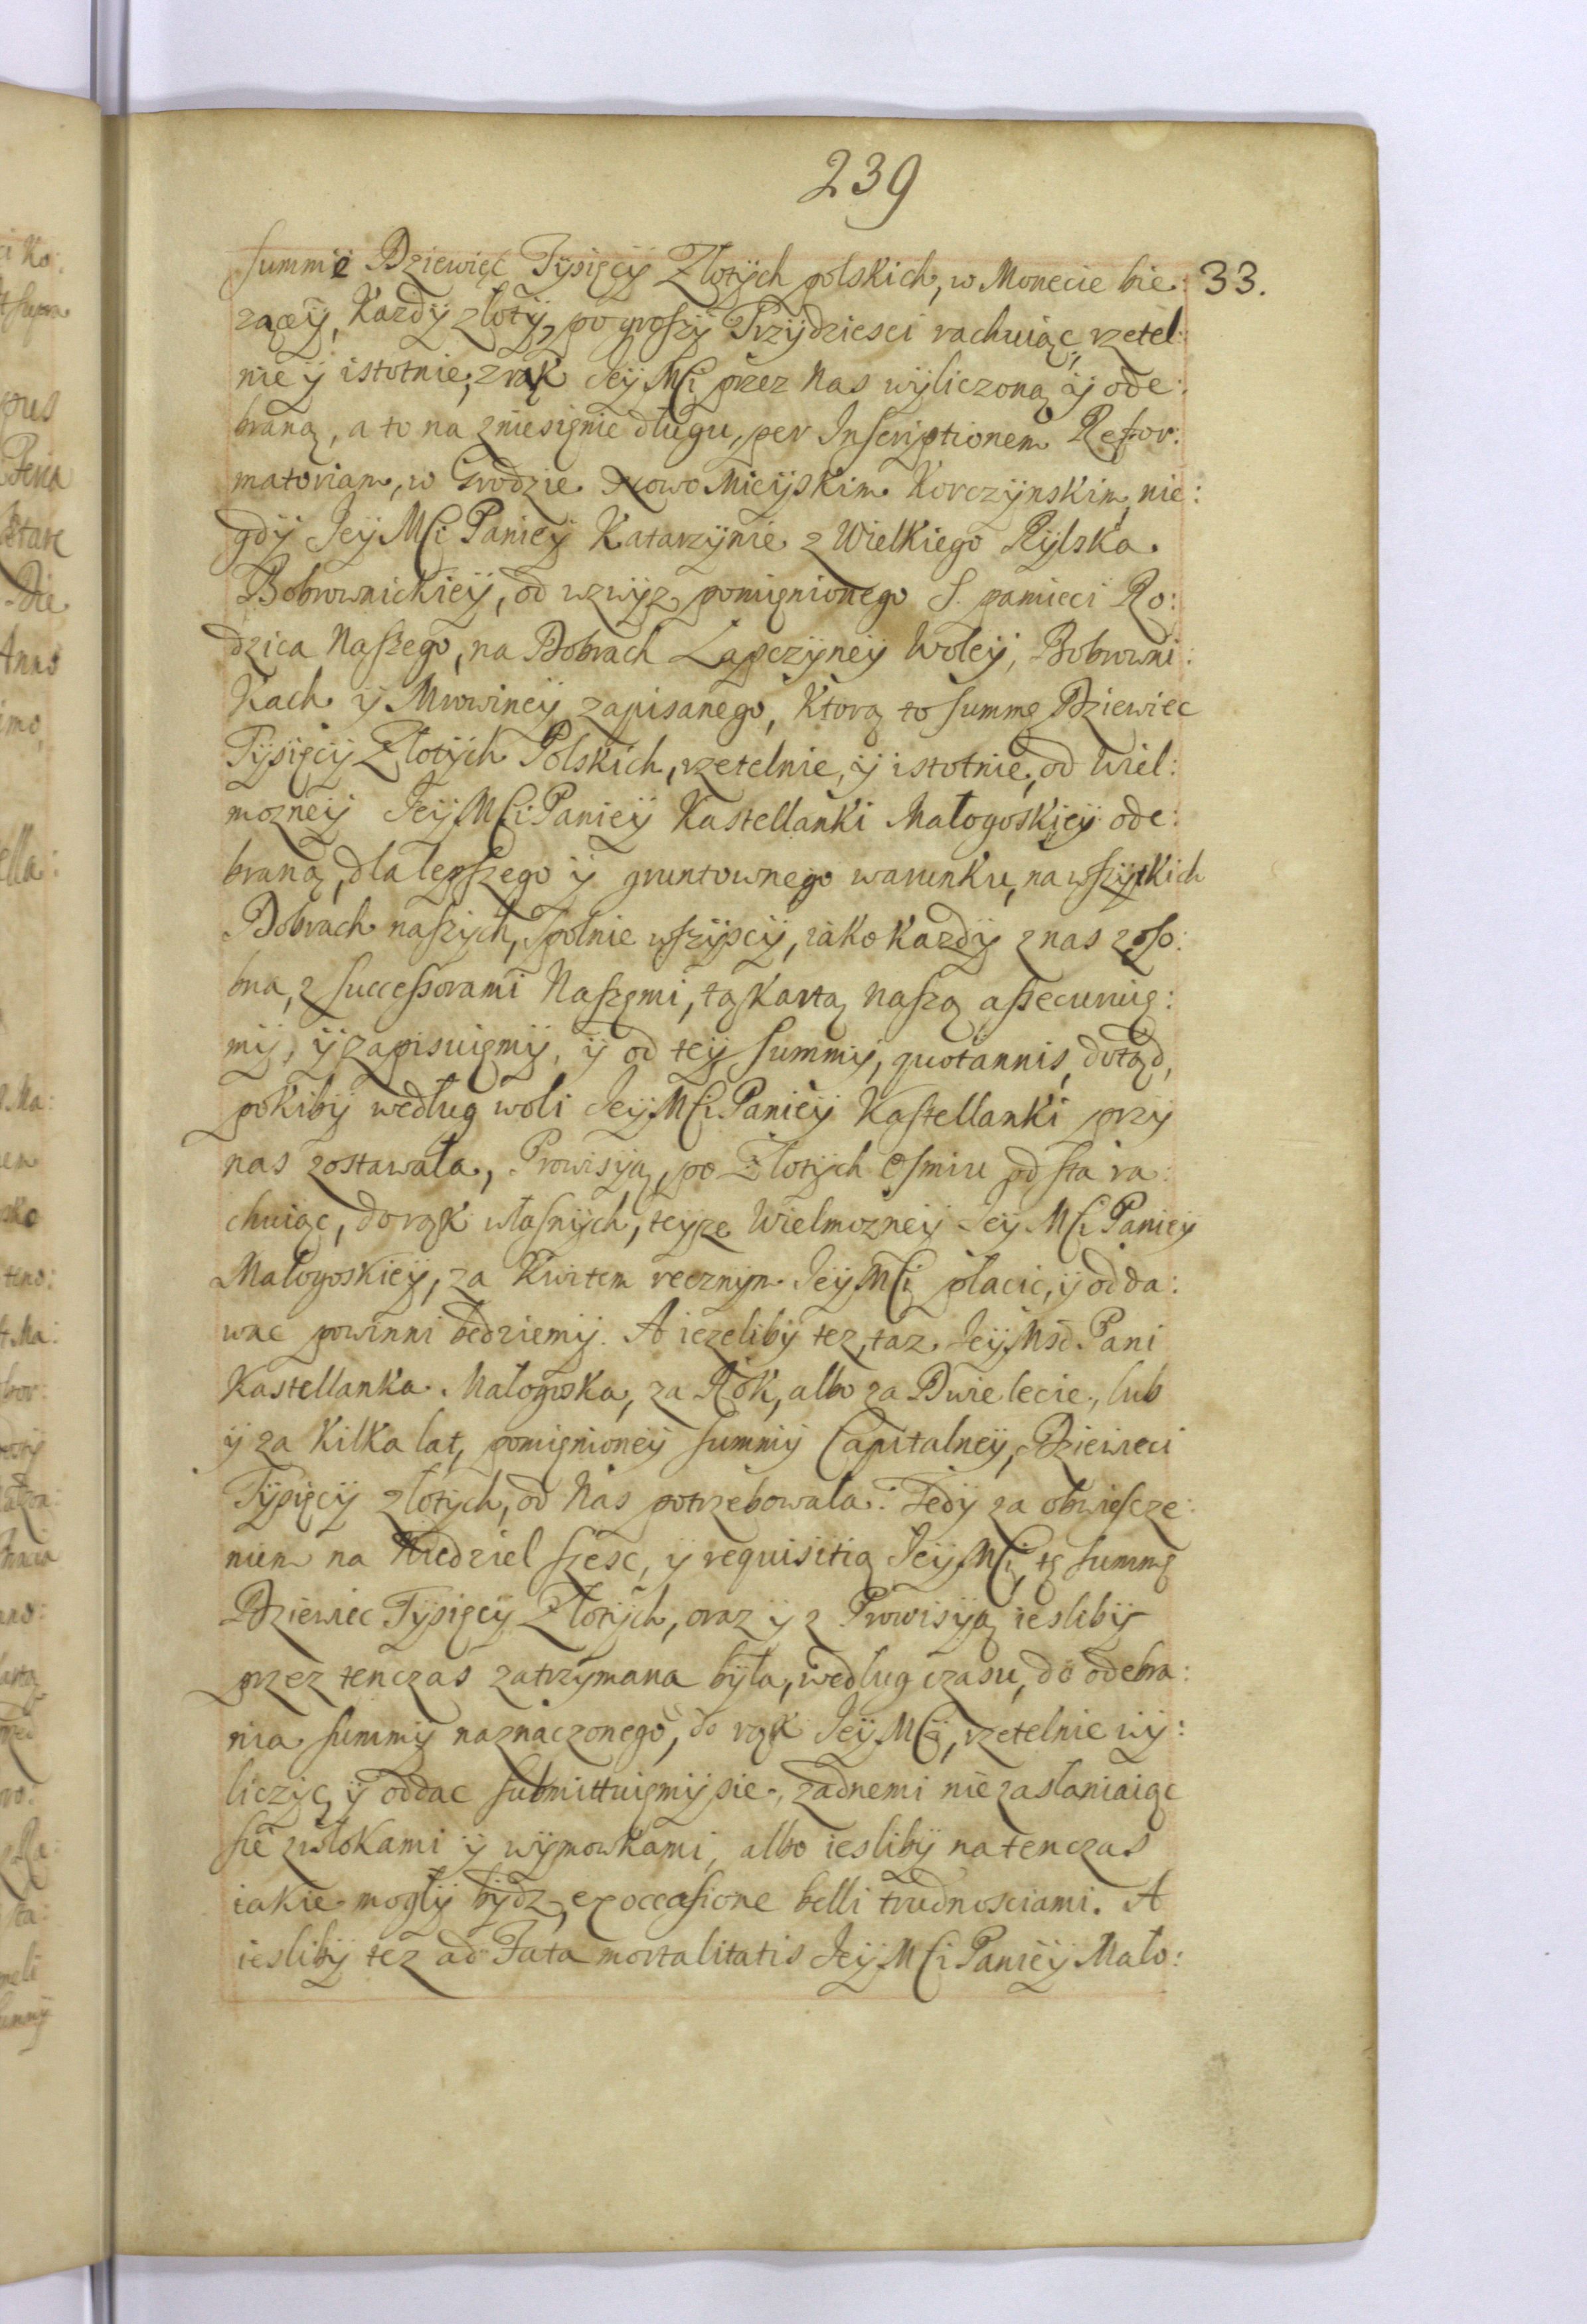 239
33.
summę Dziewięc Tysięcÿ Złotÿch polskich, w Monecie bie:
zącęÿ, Kazdÿ złotÿ, po groszÿ Trzÿdziesci rachuiąc, rzetel:
nie ÿ istotnie, z rąk Jeÿ Mści przez Nas wÿliczoną ÿ ode:
braną, a to na zniesięnie długu, per Inscriptionem Refor:
matoriam, w Grodzie Nowo Mieÿskim Korczÿnskim, nie:
gdÿ Jeÿ Mści Panieÿ Katarzÿnie z Wielkiego Rÿlska
Bobrownickieÿ, od wzwÿz pomięnionego S. pamieci Ro:
dzica Naszego, na Dobrach Łapczÿneÿ Woleÿ, Bobrowni:
kach ÿ Mrowineÿ zapisanego, Ktorą to summę Dziewiec
Tÿsięcÿ Złotÿch Polskich, rzetelnie, ÿ istotnie, od Wiel:
mozneÿ Jeÿ Mści Panieÿ Kastellanki Małogoskieÿ ode:
braną, dla lepszego ÿ gruntownego warunku, na wszÿtkich
Dobrach naszÿch, spolnie wszÿscÿ, iako kazdÿ z nas z oso:
bna, z successorami Naszęmi, tą kartą naszą assecuruię:
mÿ, ÿ zapisuięmÿ, ÿ od teÿ summÿ, quotannis, dotąd,
pokibÿ według woli Jeÿ Mści Panieÿ Kastellanki przÿ
nas zostawała, Prowisÿą, po Złotÿch osmiu od sta ra:
chuiąc, do rąk własnÿch, teÿze Wielmozneÿ Jeÿ Mści Panieÿ
Małogoskieÿ, za Kwitem recznÿm Jeÿ Mści płacic, ÿ odda:
wac powinni bedziemÿ. A iezelibÿ tez, taz Jeÿ Msć Pani
Kastellanka Małogoska, za Rok, albo za Dwie lecie, lub
ÿ za kilka lat, pomięnioneÿ summÿ Capitalneÿ, Dziewieci
Tÿsięcÿ złotÿch, od Nas potrzebowała: Tedÿ za obwiescze:
niem na Niedziel szesc, ÿ requisitią Jeÿ Mści, tę summę
Dziewiec Tÿsięcÿ Złotÿch, oraz ÿ z Prowisÿą ieslibÿ
przez tenczas zatrzÿmana bÿła, według czasu, do odebra:
nia summÿ naznaczonego, do rąk Jeÿ Mści, rzetelnie wÿ:
liczÿc, ÿ oddac submittuięmÿ sie, zadnemi nie zasłaniaiąc
sie zwłokami ÿ wÿmowkami, albo ieslibÿ na tenczas
iakie mogłÿ bÿdz, ex occasione belli trudnosciami. A
ieslibÿ tez ad Fata mortalitatis Jeÿ Mści Panieÿ Mało: